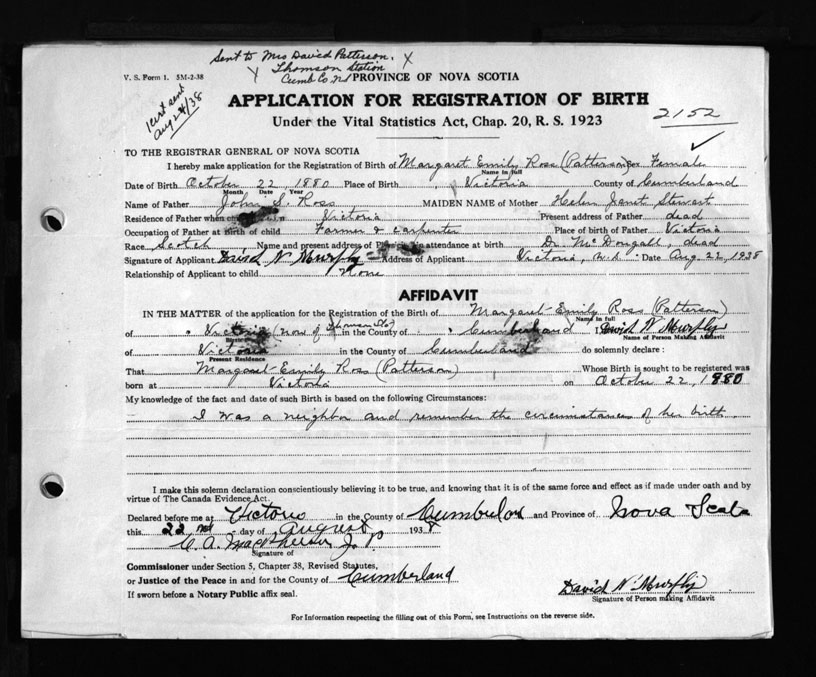 Sent to Mrs David Patterson,
Thomson Station
Cumb. Co. NS
V. S. Form 1. 5M-2-38
PROVINCE OF NOVA SCOTIA
sent Aug 24/38
APPLICATION FOR REGISTRATION OF BIRTH
2152
Under the Vital Statistics Act, Chap. 20, R. S. 1923
TO THE REGISTRAR GENERAL OF NOVA SCOTIA
I hereby make application for the Registration of Birth of Margaret Emily Ross (Patterson) Sex Female
Name in full
Date of Birth October 22, 1880 Place of Birth Victoria County of Cumberland
Month Date Year
Name of Father John S. Ross MAIDEN NAME of Mother Helen Janet Stewart
Residence of Father when Victoria Present address of Father dead
Occupation of Father at birth of child Farmer & carpenter Place of birth of Father Victoria
Race Scotch Name and present address of Physician in attendance at birth Dr. McDougall, dead
Signature of Applicant David N. Murphy Address of Applicant Victoria, N.S. Date Aug. 22, 1938
Relationship of Applicant to child None
AFFIDAVIT
IN THE MATTER of the application for the Registration of the Birth of Margaret Emily Ross (Patterson)
Name in full
of Victoria (now of Thomson Sta) in the County of Cumberland I, David N. Murphy
Name of Person Making Affidavit
of Victoria in the County of Cumberland do solemnly declare :
Present Residence
That Margaret Emily Ross (Patterson) Whose Birth is sought to be registered was
born at Victoria on October 22, 1880
My knowledge of the fact and date of such Birth is based on the following Circumstances:
I was a neighbor and remember the circumstances of her birth.
I make this solemn declaration conscientiously believing it to be true, and knowing that it is of the same force and effect as if made under oath and by
virtue of The Canada Evidence Act.
Declared before me at Victoria in the County of Cumberland and Province of Nova Scotia
this 22nd day of August 1938
C. A. MacPherson J. P.
Signature of
Commissioner under Section 5, Chapter 38, Revised Statutes,
or Justice of the Peace in and for the County of Cumberland
If sworn before a Notary Public affix seal.
David N. Murphy
Signature of Person making Affidavit
For Information respecting the filling out of this Form, see Instructions on the reverse side.